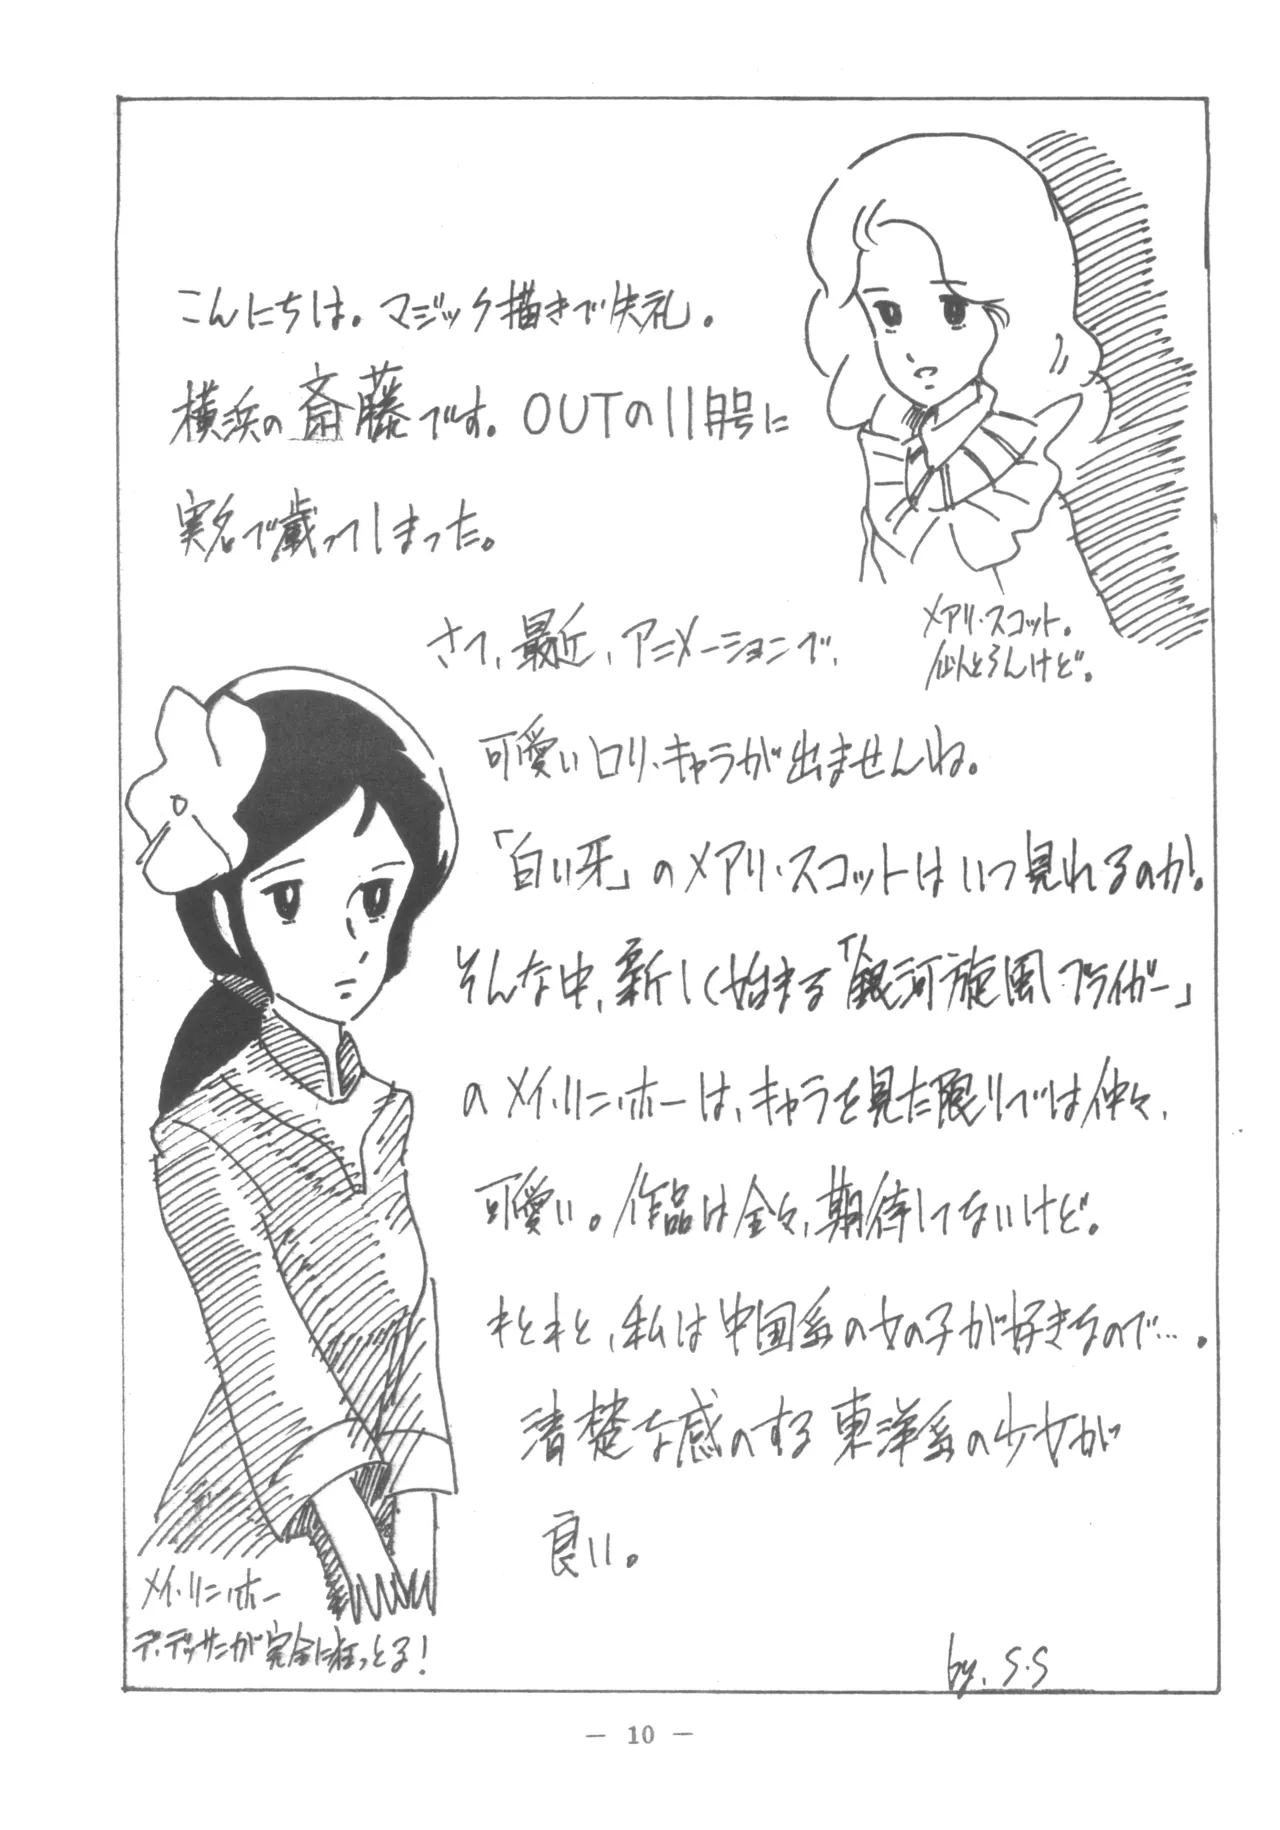 こんにちは。マジック描きで失礼。
横浜の斎藤です。OUTの11月号に
実名で載ってしまった。
メアリ・スコット。
似とらんけど。
さて、最近、アニメーションで、
可愛いロリ・キャラが出ませんね。
「白い牙」のメアリ・スコットはいつ見れるのか!。
そんな中、新しく始まる「銀河旋風ブライガー」
のメイ・リン・ホーは、キャラを見た限りでは仲々、
可愛い。作品は全々、期待してないけど。
もともと、私は中国系の女の子が好きなので…。
清楚な感のする東洋系の少女が
良い。
メイ・リン・ホー
デ・デッサンが完全に狂っとる!
by. S.S
— 10 —